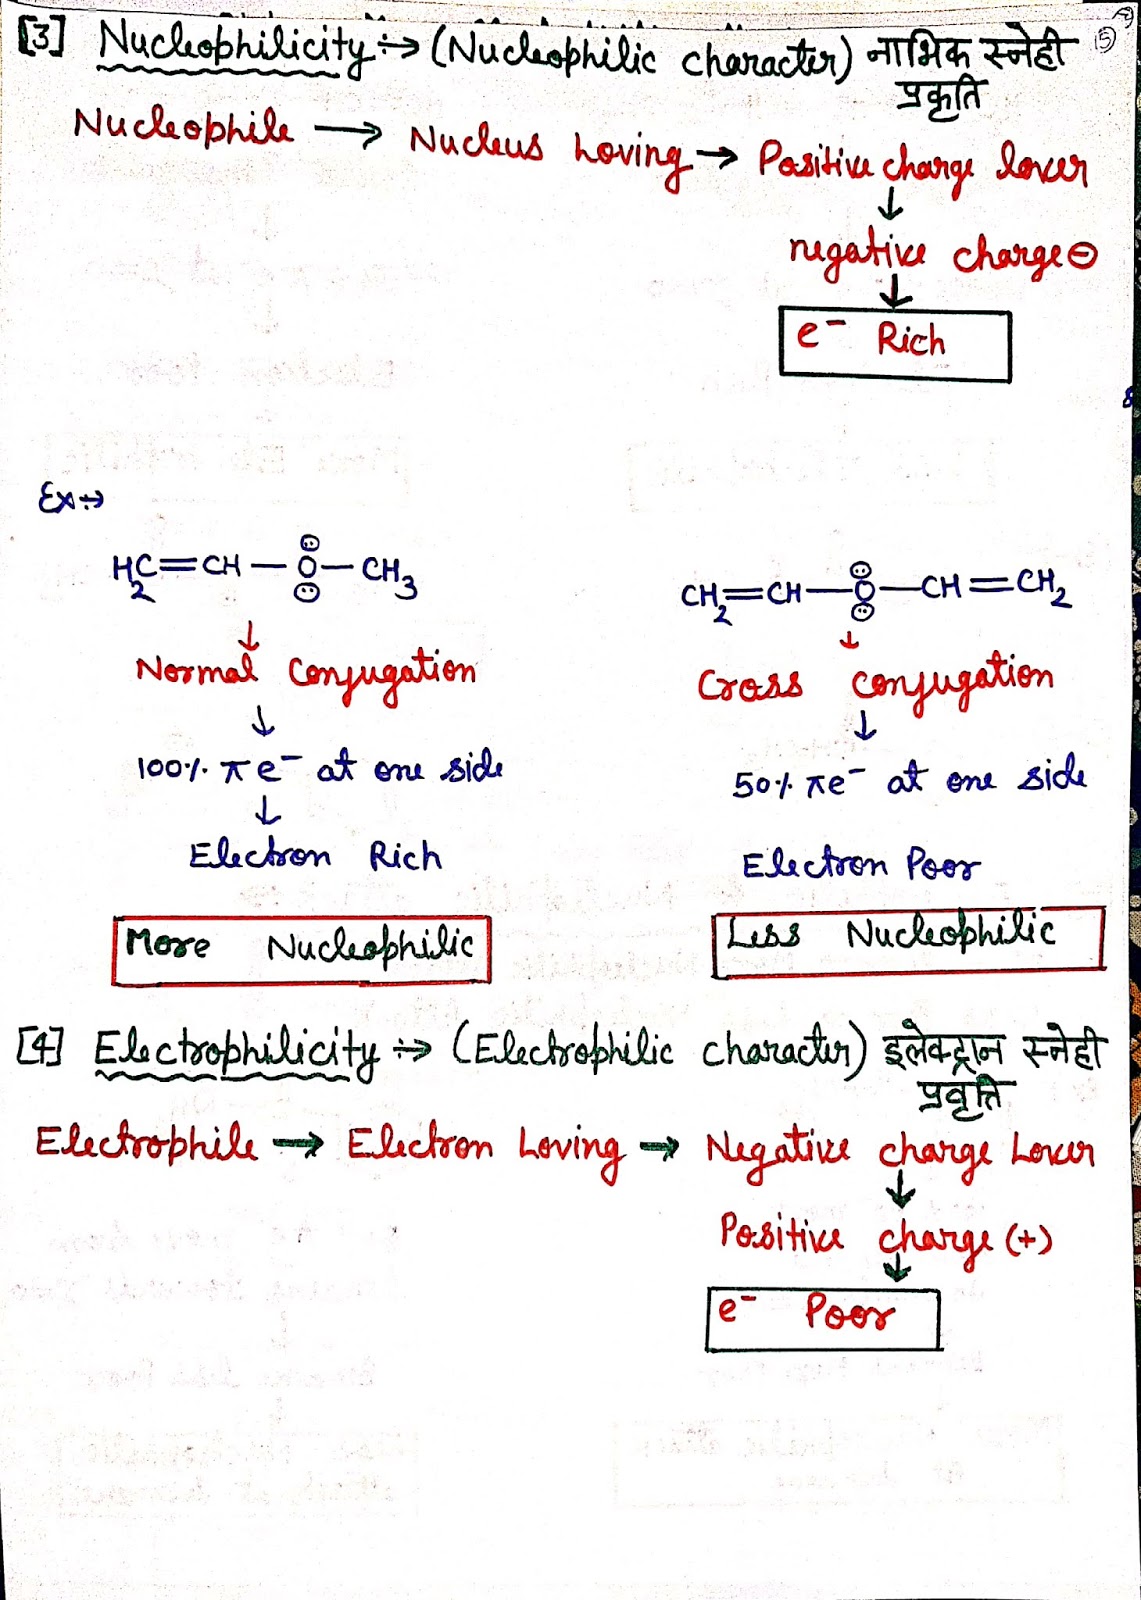 [3] Nucleophilicity ÷→ (Nucleophilic character) नाभिक स्नेही 15
प्रकृति
Nucleophile → Nucleus Loving → Positive charge lover
↓
negative charge ⊖
↓
e⁻ Rich
Ex ÷→
H₂C=CH—O—CH₃
CH₂=CH—O—CH=CH₂
↓ ↓
Normal Conjugation
Cross conjugation
↓ ↓
100% π e⁻ at one side
50% πe⁻ at one side
↓
Electron Rich
Electron Poor
More Nucleophilic
Less Nucleophilic
[4] Electrophilicity ÷→ (Electrophilic character) इलेक्ट्रान स्नेही
प्रवृत्ति
Electrophile → Electron Loving → Negative charge Lover
↓
Positive charge (+)
↓
e⁻ Poor